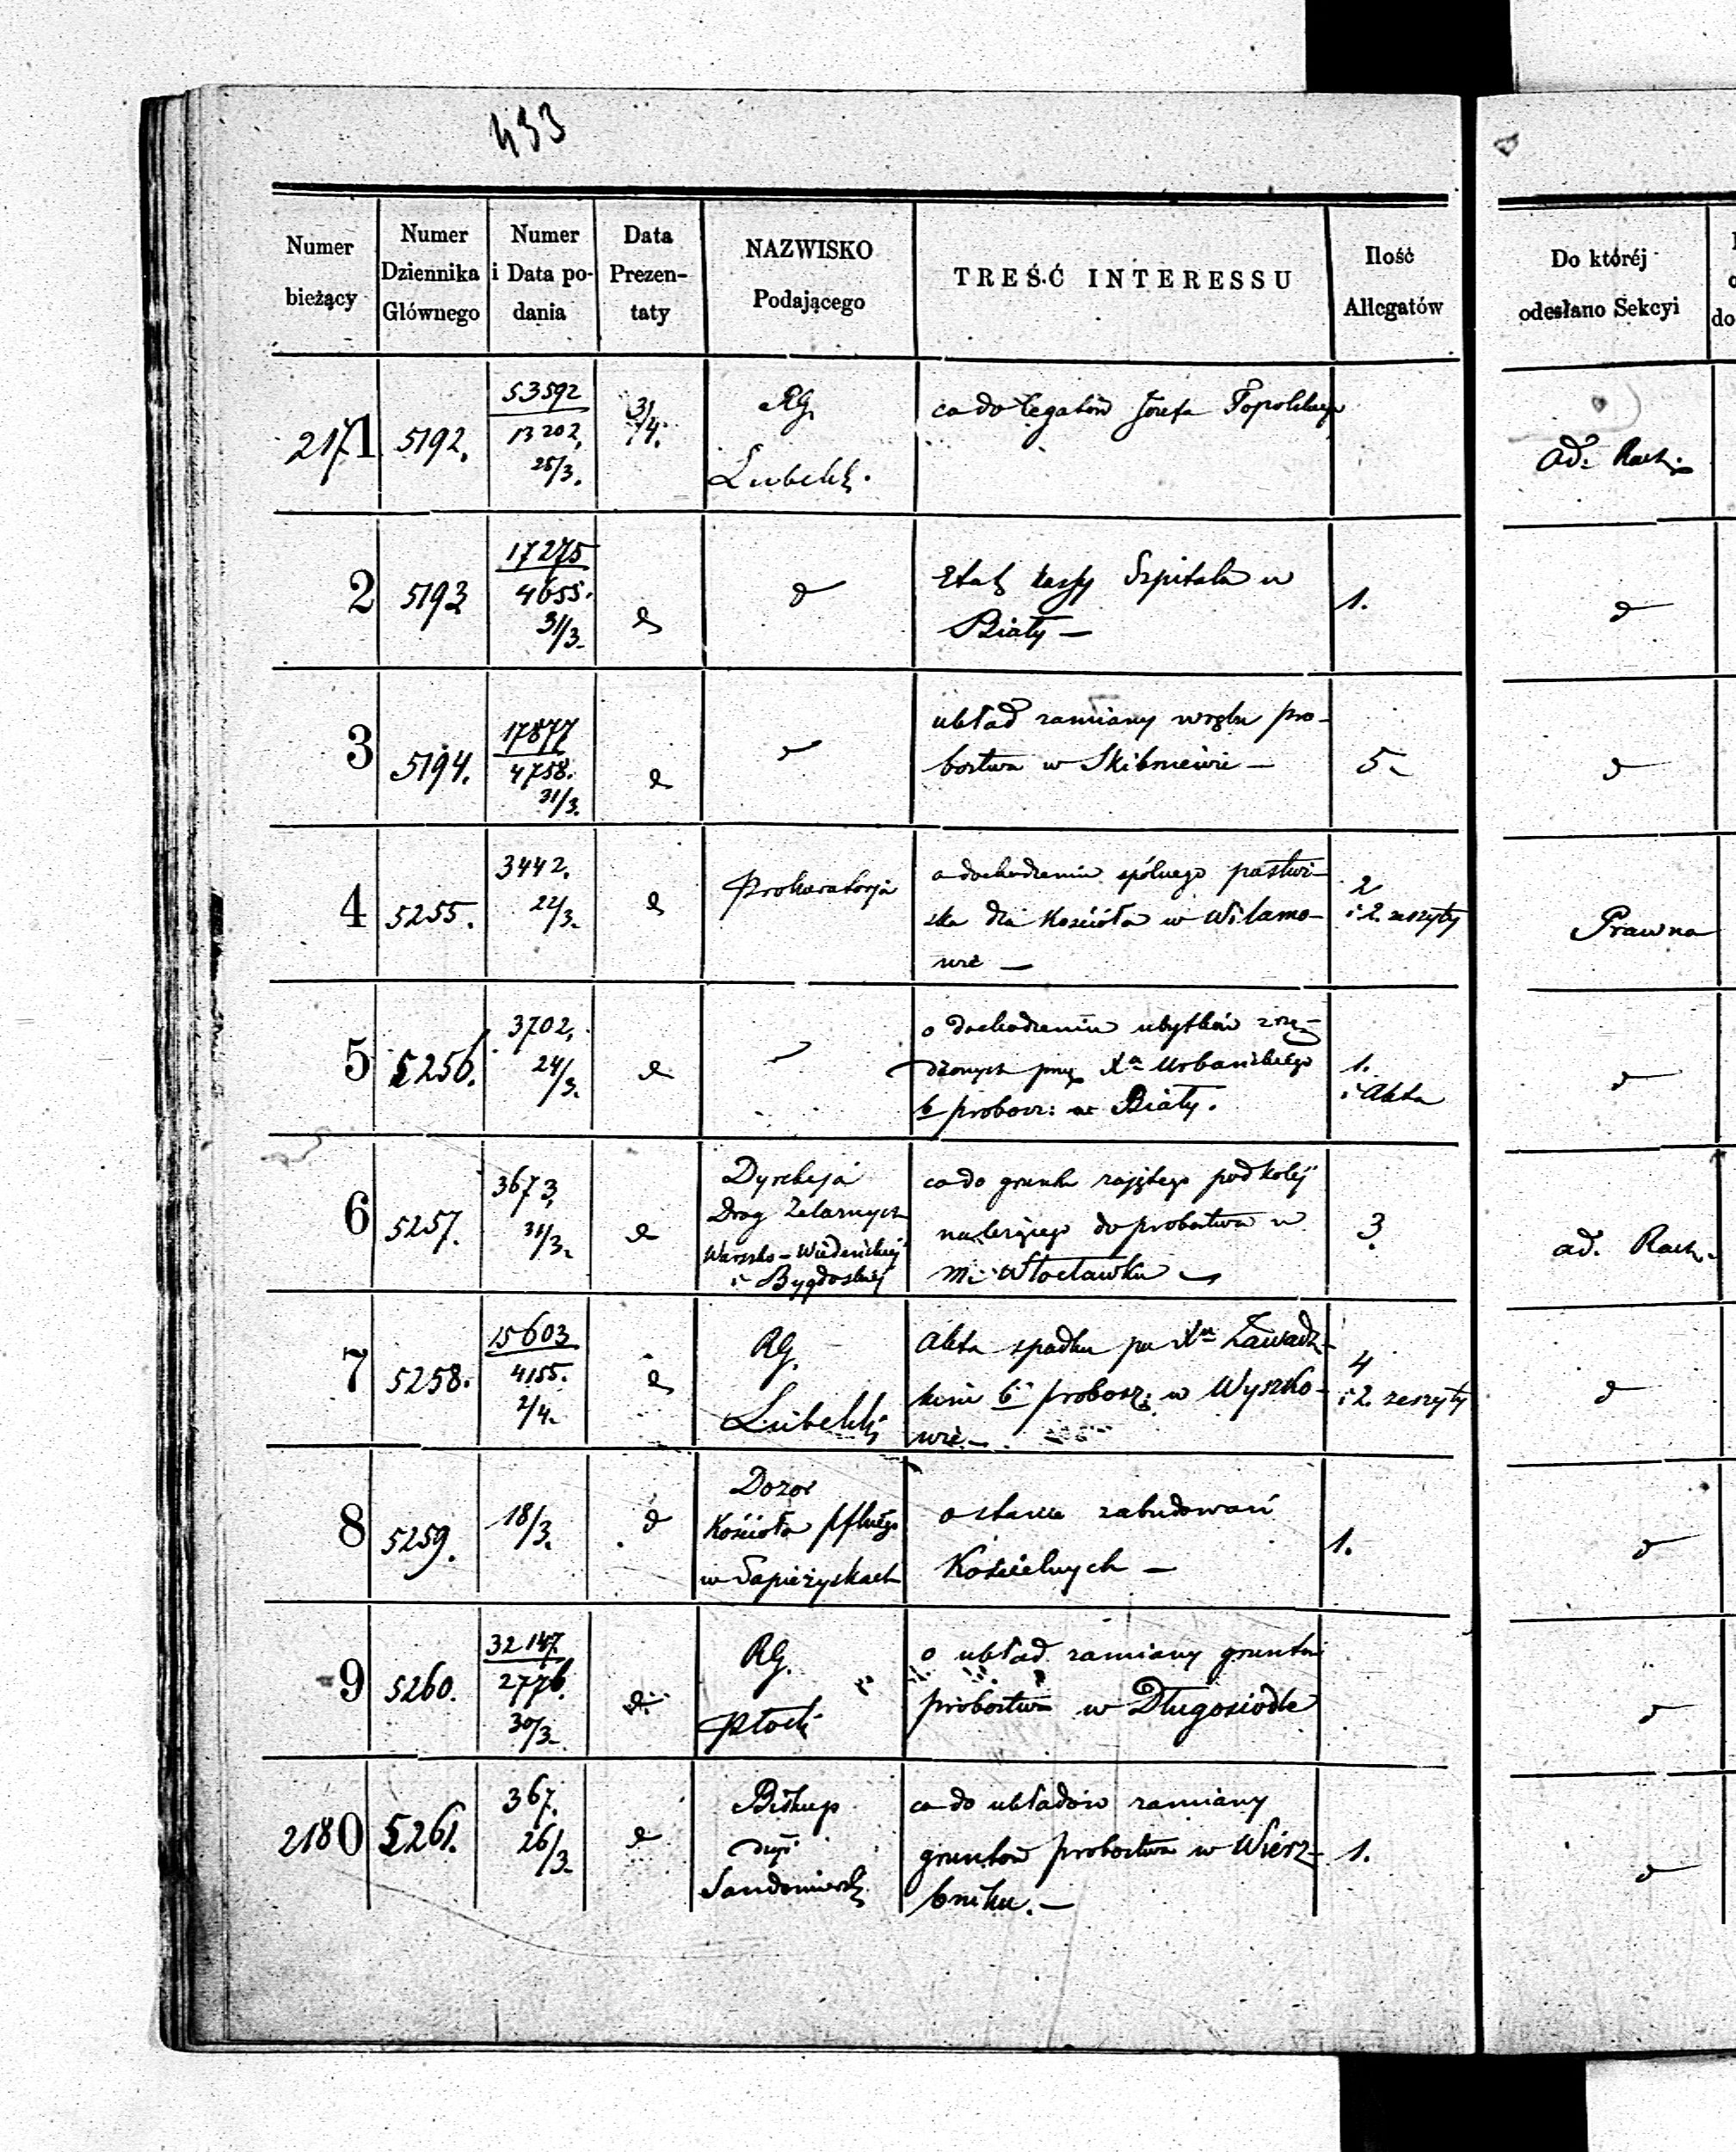 433
Numer bieżący
Numer Dziennika Głównego
Numer i Data podania
Data Prezentaty
NAZWISKO Podającego
TREŚĆ INTERESSU
Ilość Allegatów
Do któréj odesłano Sekcyi
2171 5192. 53592 13202, 25/3. 3/4. RG. Lubelsk.
co do legatów Józefa Topolskiego
ad. Rach.
2 5193 17275 4655. 31/3. d d
Etat kassy Szpitala w
Biały —
1. d
3 5194. 17877 4758. 31/3. d
układ zamiany wzglu pro-
bostwa w Skibniewie —
5 d
4 5255. 3442. 22/3. d Prokuratorja
o dochodzeniu spólnego pastwi-
ska dla Kościoła w Wilamo-
wie —
2 i 2. zeszyty
Prawna
5 5256. 3702, 24/3. d
o dochodzeniu ubytków zrzą-
dzonych przez Xa Urbańskiego
b probosz: w Biały.
1. i Akta
d
6 5257. 3673, 31/3. d
Dyrekcja
Drog Żelaznych
Warszko-Wiedeńskiej
i Bygdoskiej
co do gruntu zajętego pod kolej
należącego do probostwa w
m. Włocławku —
3
ad. Rach.
7 5258. 15603 4155. 2/4. d RG. Lubelski
Akta spadku po Xu Zawadz-
kim b probosz: w Wyszko-
wie —
4 i 2. zeszyty
d
8 5259. 18/3. d
Dozor
Kościoła pflnego
w Sapieżyskach
o stanie zabudowań
Kościelnych —
1. d
9 5260. 32147. 2776. 30/3. d RG. Płock
o układ zamiany gruntów
probostwa w Długosiodle
d
2180 5261. 367. 26/3. d
Biskup
dyi
Sandomiersk
co do układów zamiany
gruntów probostwa w Wierz-
bniku. —
1. d